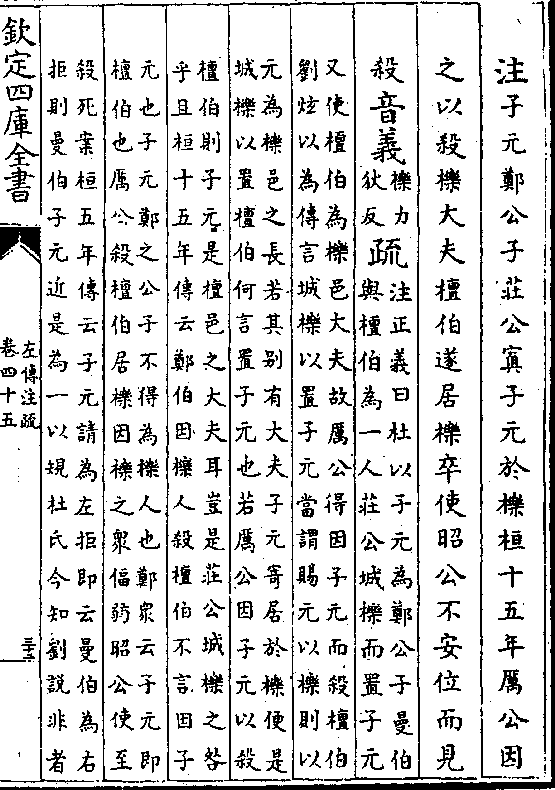 注子元鄭公子莊公寘子元於櫟桓十五年厲公因
之以殺櫟大夫檀伯遂居櫟卒使昭公不安位而見
殺音義櫟力狄反疏注正義曰杜以子元為鄭公子曼伯
與檀伯為一人莊公城櫟而置子元
又使檀伯為櫟邑大夫故厲公得因子元而殺檀伯
劉炫以為傳言城櫟以置子元當謂賜元以櫟則以
元為櫟邑之長若其别有大夫子元寄居於櫟便是
城櫟以置檀伯何言置子元也若厲公因子元以殺
檀伯則子元是檀邑之大夫耳豈是莊公城櫟之咎
乎且桓十五年傳云鄭伯因櫟人殺檀伯不言因子
元也子元鄭之公子不得為櫟人也鄭衆云子元即
檀伯也厲公殺檀伯居櫟因櫟之衆偪弱昭公使至
殺死案桓五年傳云子元請為左拒即云曼伯為右
拒則曼伯子元近是為一以規杜氏今知劉說非者
欽定四庫全書
左傳注疏
卷四十五